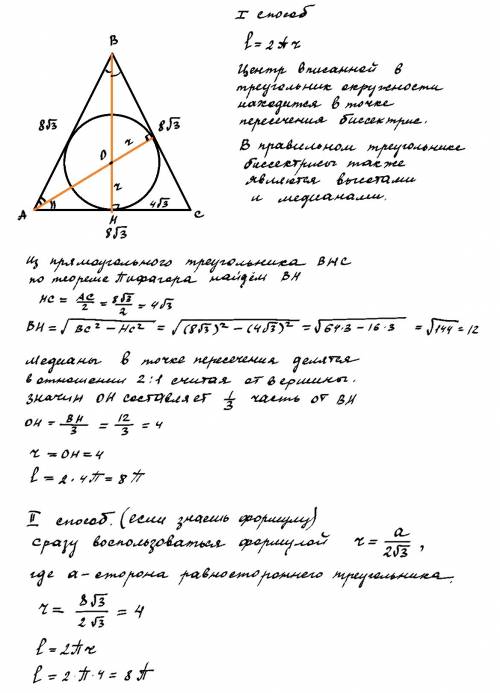 I способ
l = 2πr
Центр вписанной в
треугольник окружности
находится в точке
пересечения биссектрис.
В правильном треугольнике
биссектрисы также
являются высотами
и медианами.
B
8√3
8√3
r
O
r
4√3
A
H
C
8√3
Из прямоугольного треугольника BHC
по теореме Пифагора найдём BH
HC = AC/2 = 8√3/2 = 4√3
BH = √(BC² − HC²) = √((8√3)² − (4√3)²) = √(64·3 − 16·3) = √144 = 12
Медианы в точке пересечения делятся
в отношении 2:1 считая от вершины.
Значит OH составляет 1/3 часть от BH
OH = BH/3 = 12/3 = 4
r = OH = 4
l = 2·4π = 8π
II способ. (если знаешь формулу)
сразу воспользоваться формулой r = a/2√3,
где a – сторона равностороннего треугольника.
r = 8√3/2√3 = 4
l = 2πr
l = 2·π·4 = 8π